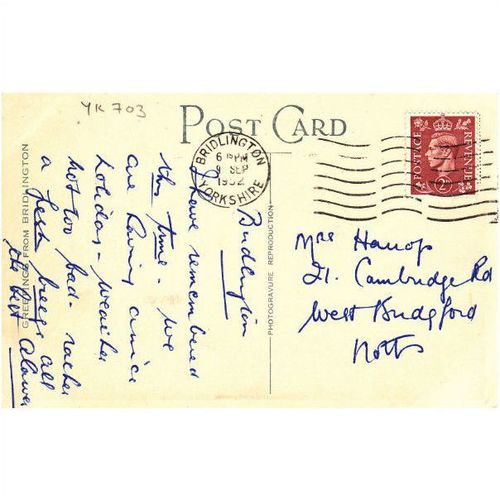 YK 703
POST CARD
GREETINGS FROM BRIDLINGTON
PHOTOGRAVURE REPRODUCTION
BRIDLINGTON
6 PM
9 SEP
1952
YORKSHIRE
POSTAGE
REVENUE
2D
Bridlington
I have remembered
this time - we
are having a nice
holiday - weather
not too bad - rather
a fresh breeze all
the best
Mrs
21. Cambridge Rd
West Bridgford
Notts